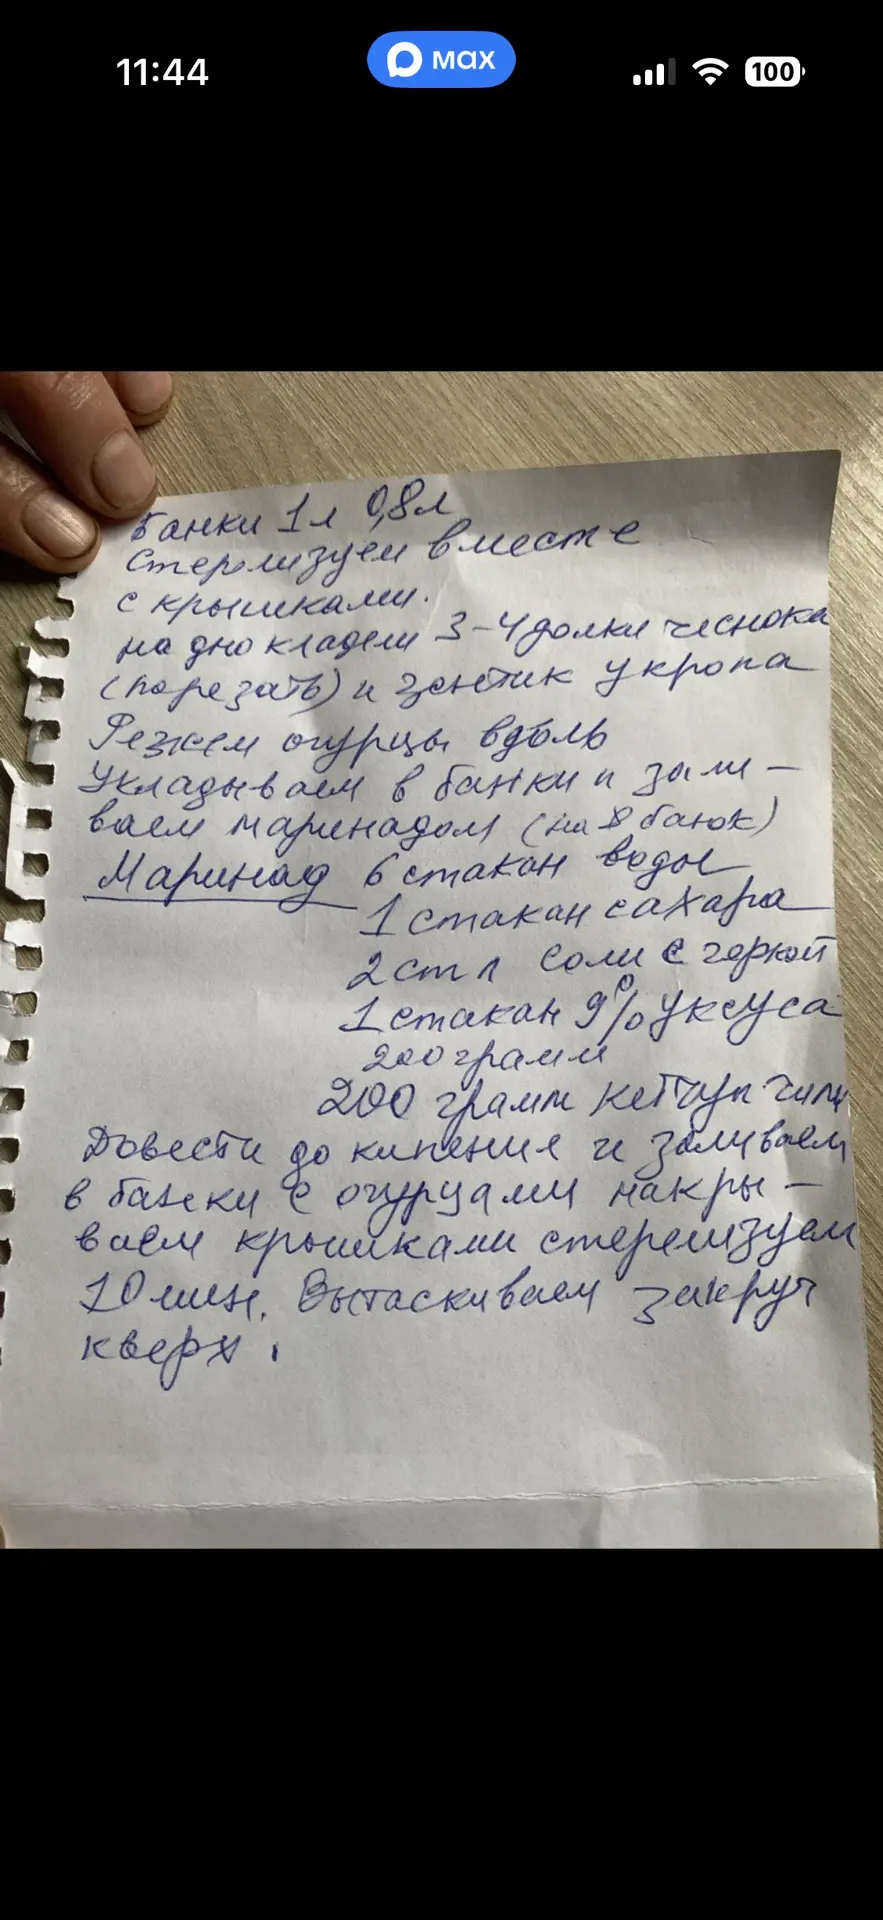 11:44
max
100
Банки 1л 0,8л
Стерилизуем вместе
с крышками.
на дно кладем 3-4 долки чеснока
(порезать) и зонтик укропа
Режем огурцы вдоль
Укладываем в банки и зали-
ваем маринадом (на 8 банок)
Маринад 6 стакан воды
1 стакан сахара
2 ст л соли с горкой
1 стакан 9% уксуса
200 грамм
200 грамм кетчуп чили
Довести до кипения и заливаем
в банки с огурцами накры-
ваем крышками стерелизуем
10 мин. Вытаскиваем закруч
кверх.